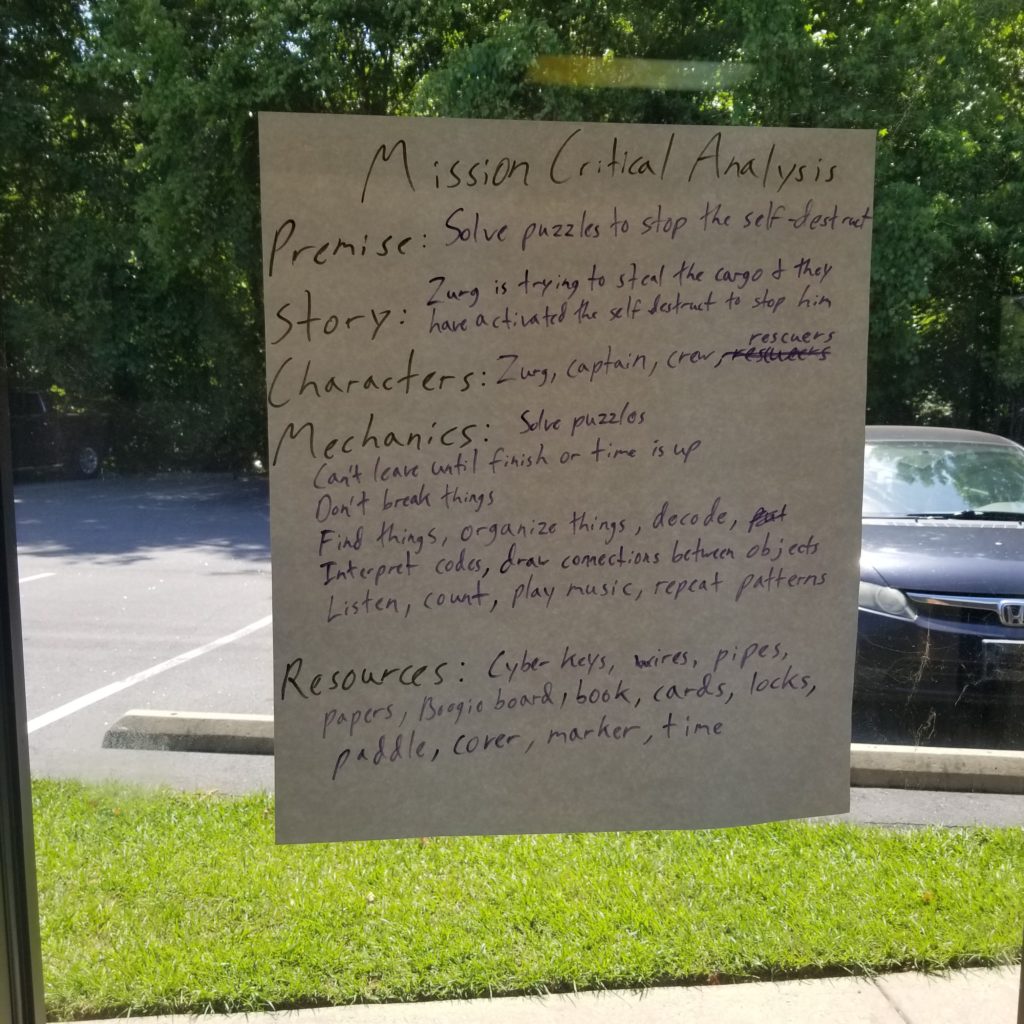 Mission Critical Analysis
Premise: Solve puzzles to stop the self-destruct
Story: Zurg is trying to steal the cargo & they
have activated the self destruct to stop him
rescuers
Characters: Zurg, captain, crew, rescuers
Mechanics: Solve puzzles
Can't leave until finish or time is up
Don't break things
Find things, organize things, decode,
Interpret codes, draw connections between objects
Listen, count, play music, repeat patterns
Resources: Cyber keys, wires, pipes,
papers, Boogie board, book, cards, locks,
paddle, cover, marker, time